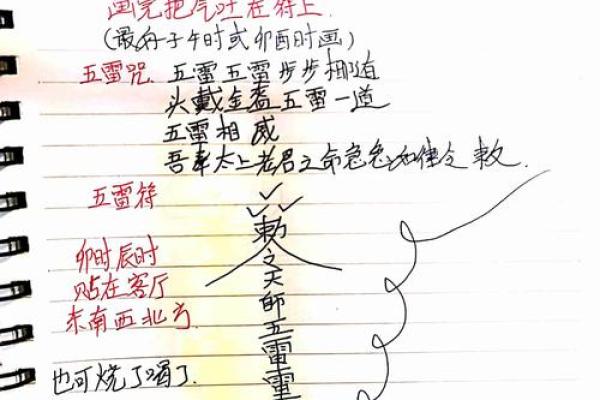 画完把气吐在符上
(最好子午时或卯酉时画)
五雷咒 五雷五雷步步相追
头戴金盔五雷一道
五雷相威
吾奉太上老君之命急急如律令敕.
五雷符
卯时辰时
贴在客厅
东南西北方
也可烧了喝了.
勅
之
天
師
五
雷